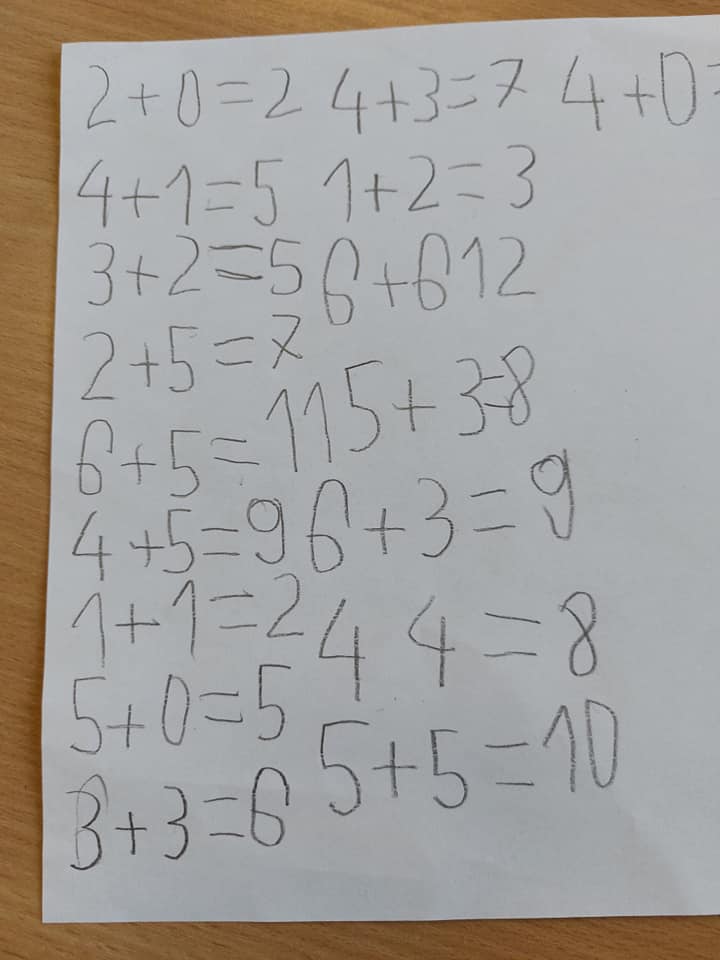 2+0=2 4+3=7 4+0=
4+1=5 1+2=3
3+2=5 6+612
2+5=7
6+5=11 5+3=8
4+5=9 6+3=9
1+1=2 4 4=8
5+0=5 5+5=10
3+3=6